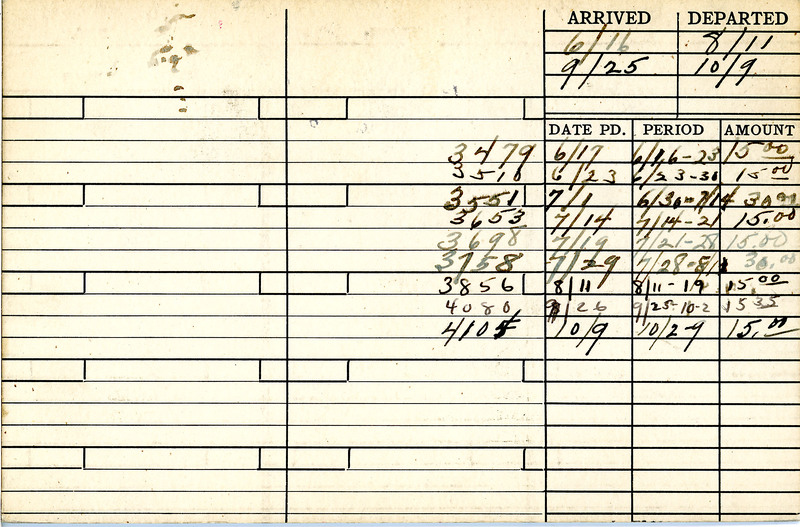 ARRIVED DEPARTED
6/16 8/11
9/25 10/9
DATE PD. PERIOD AMOUNT
3479 6/17 6/16-23 15.00
3510 6/23 6/23-30 15.00
3551 7/1 6/30-7/14 30.00
3653 7/14 7/14-21 15.00
3698 7/19 7/21-28 15.00
3758 7/29 7/28-8/11 30.00
3856 8/11 8/11-19 15.00
4080 9/26 9/25-10-2 15.35
4105 10/9 10/2-9 15.00